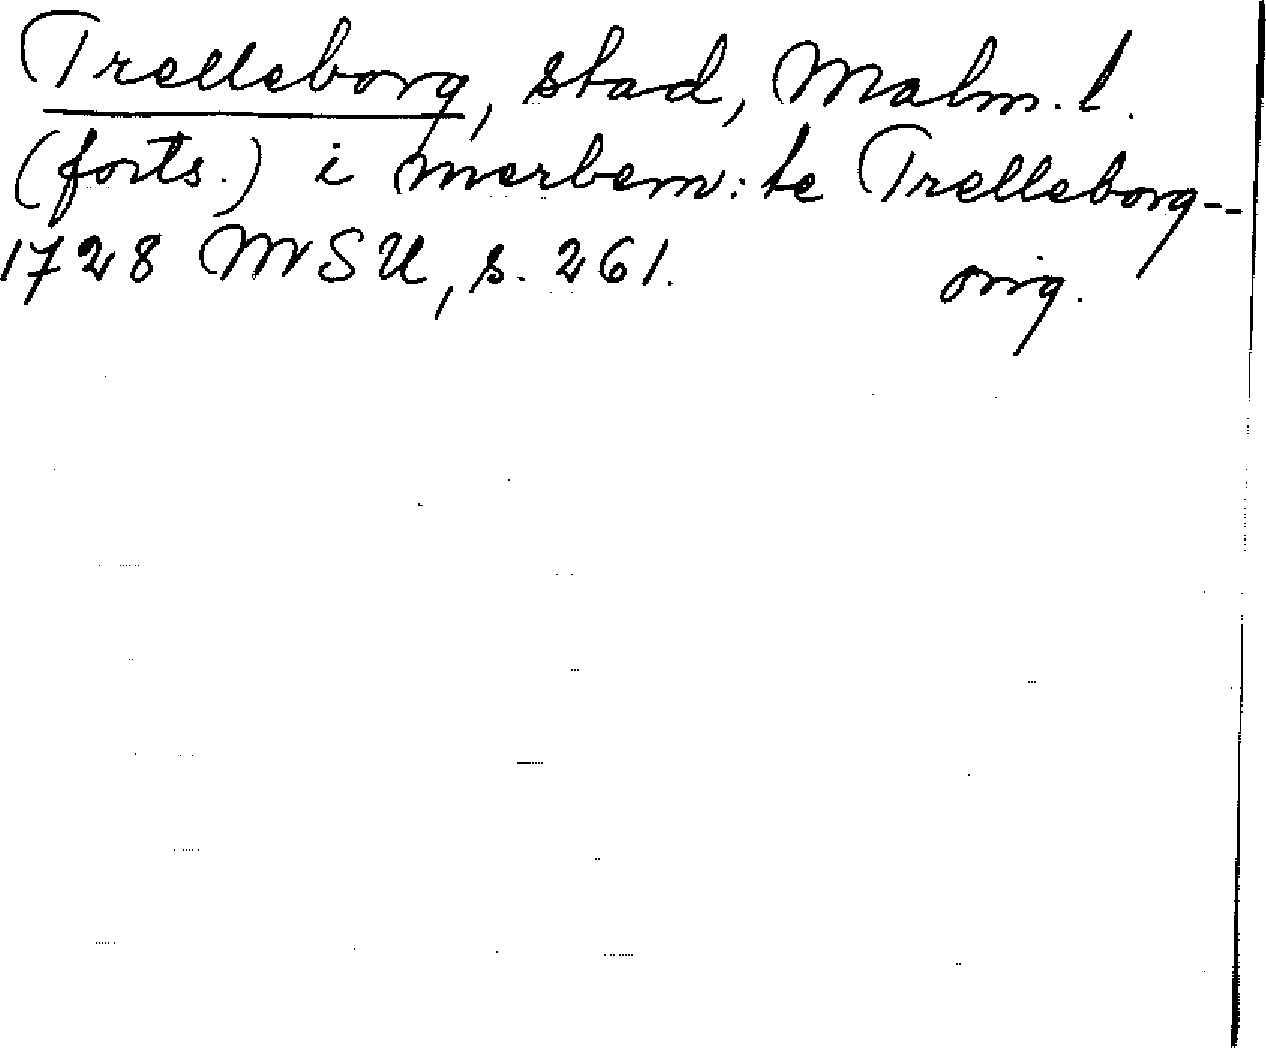 Trelleborg, stad, Malm. l.
(forts.) i merbem: te Trelleborg--
1728 MSU, s. 261. orig.